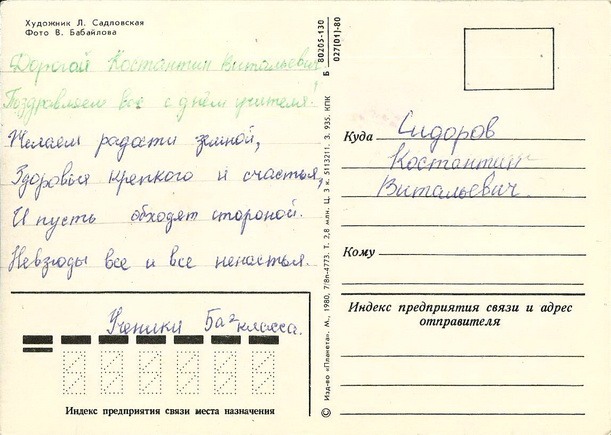 Художник Л. Садповская
Фото В. Бабайлова
Дорогой Костантин Витальевич
Поздравляем вас с днём учителя!
Желаем радости земной,
Здоровья крепкого и счастья,
И пусть обходят стороной.
Невзгоды все и все ненастья.
Ученики 5а² класса.
Индекс предприятия связи места назначения
© Изд-во «Планета». М., 1980, 7/8п-4773. Т. 2,8 млн. Ц. 3 к. 5113211. З. 935. КПК
Б 80205-130 027(01)-80
Куда Сидоров
Костантин
Витальевич.
Кому
Индекс предприятия связи и адрес
отправителя